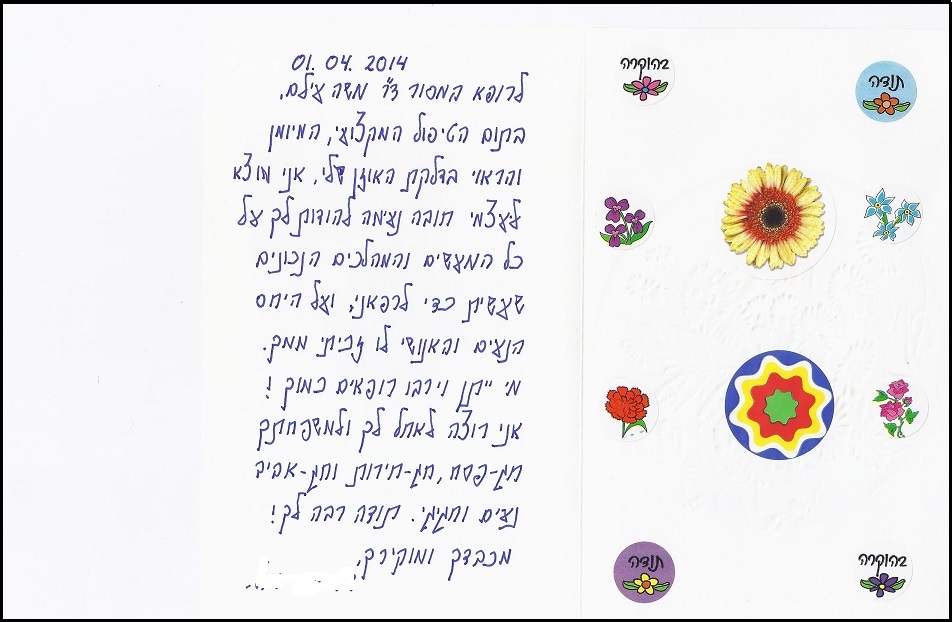 01. 04. 2014
לרופא המסור ד"ר משה עילם.
בתום הטיפול המקצועי, המיומן
והראוי בדלקת האוזן שלי, אני מוצא
לעצמי חובה נעימה להודות לך על
כל המעשים והמהלכים הנכונים
שעשית כדי לרפאני, ועל היחס
הנעים והאנושי לו זכיתי ממך.
מי ייתן וירבו רופאים כמוך!
אני רוצה לאחל לך ולמשפחתך
חג-פסח, חג-חירות וחג-אביב
נעים וחגיגי. תודה רבה לך!
מכבדך ומוקירך,
בהוקרה
תודה
תודה
בהוקרה